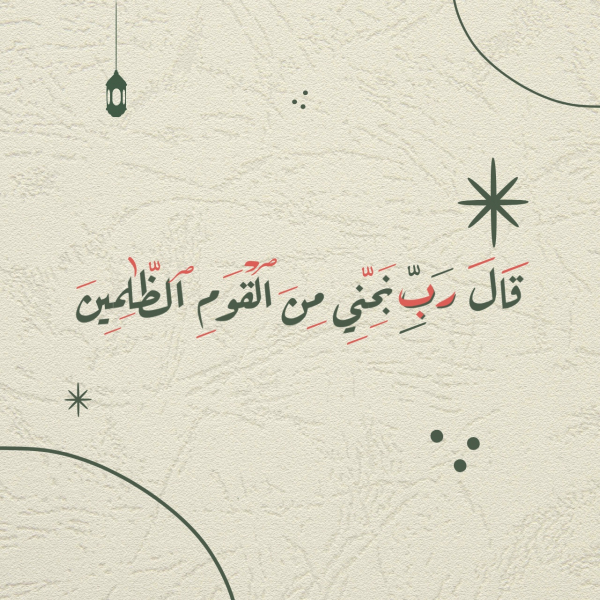 قَالَ رَبِّ نَجِّنِي مِنَ ٱلْقَوْمِ ٱلظَّٰلِمِينَ